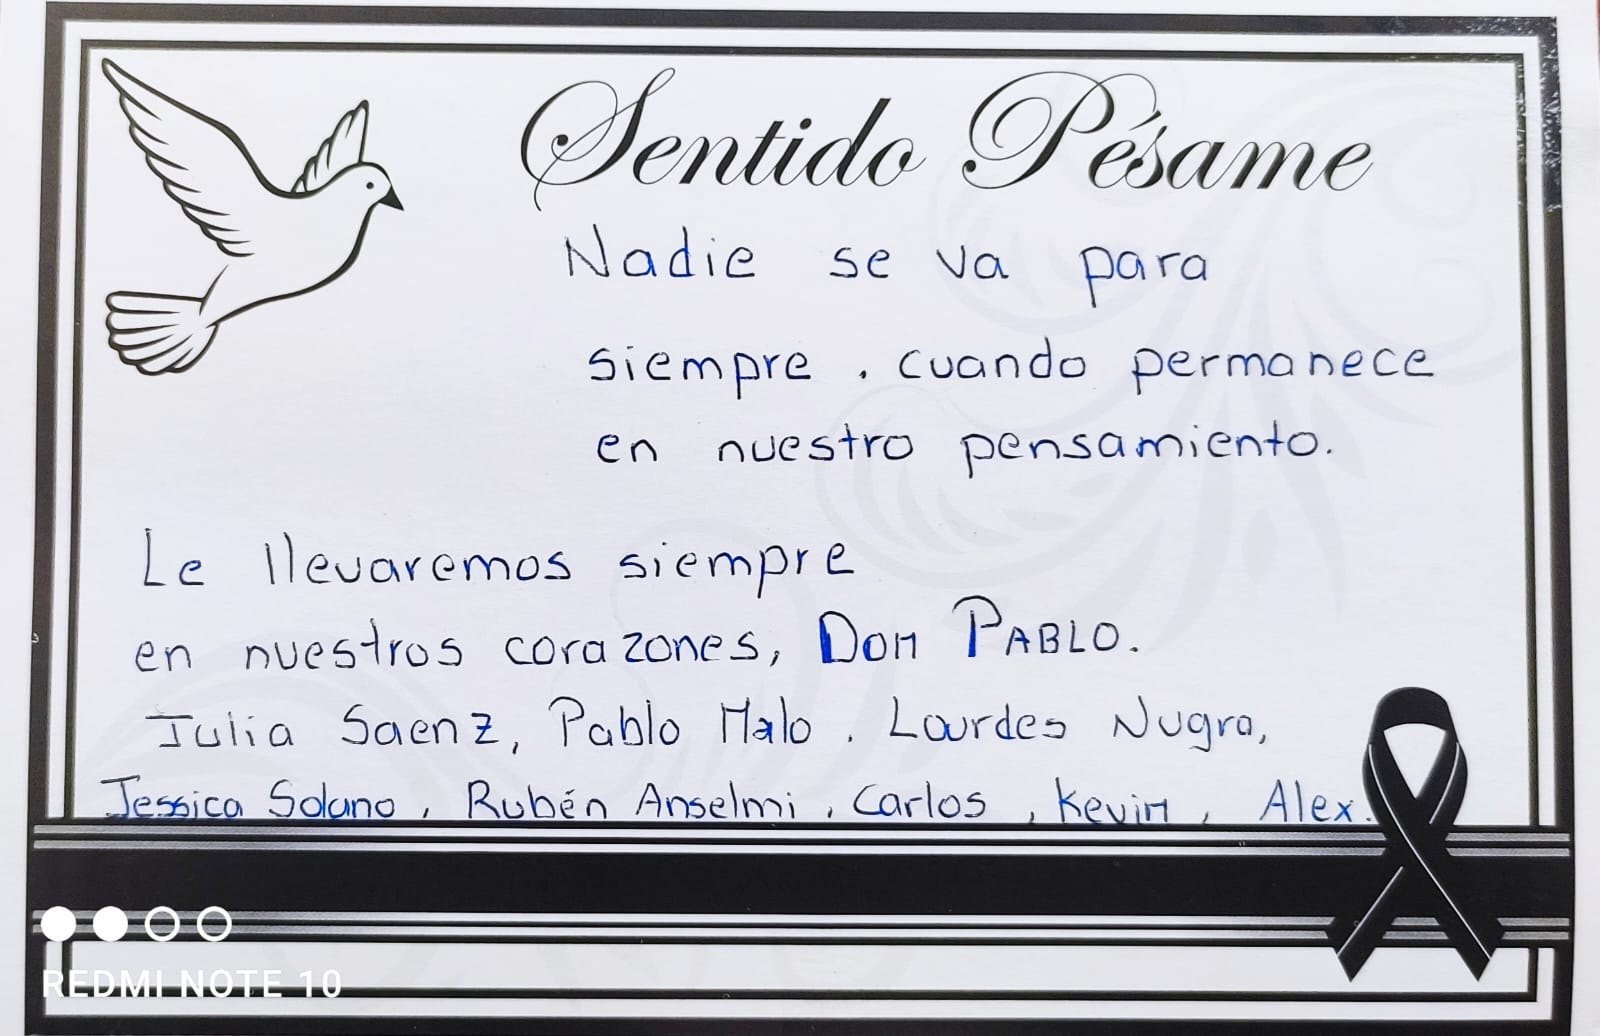 Sentido Pésame
Nadie se va para
siempre, cuando permanece
en nuestro pensamiento.
Le llevaremos siempre
en nuestros corazones, Don PABLO.
Julia Saenz, Pablo Malo, Lourdes Nugra,
Jessica Solano, Rubén Anselmi, Carlos, Kevin, Alex.
REDMI NOTE 10